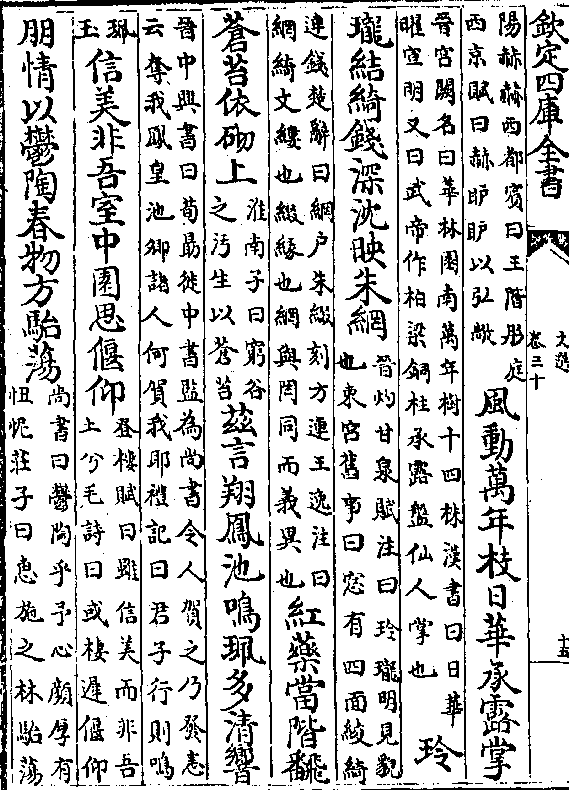 欽定四庫全書
文選
卷三十
十五
陽赫赫西都賓曰玉階彤庭
西京賦曰赫昈昈以弘敞
風動萬年枝日華承露掌
晉宮闕名曰華林園南萬年樹十四株漢書曰日華
曜宣明又曰武帝作柏梁銅柱承露盤仙人掌也
玲
瓏結綺錢深沈映朱網
晉灼甘泉賦注曰玲瓏明見貌
也東宮舊事曰窓有四面綾綺
連錢楚辭曰網户朱綴刻方連王逸注曰
網綺文縷也綴緣也網與罔同而義異也
紅藥當階翻
蒼苔依砌上
淮南子曰窮谷
之汚生以蒼苔
茲言翔鳳池鳴珮多清響
晉中興書曰荀勗徙中書監為尚書令人賀之乃發恚
云奪我鳳皇池卿諸人何賀我耶禮記曰君子行則鳴
珮
玉
信美非吾室中園思偃仰
登樓賦曰雖信美而非吾
土兮毛詩曰或棲遲偃仰
朋情以鬱陶春物方駘蕩
尚書曰鬱陶乎予心顔厚有
忸怩莊子曰惠施之林駘蕩